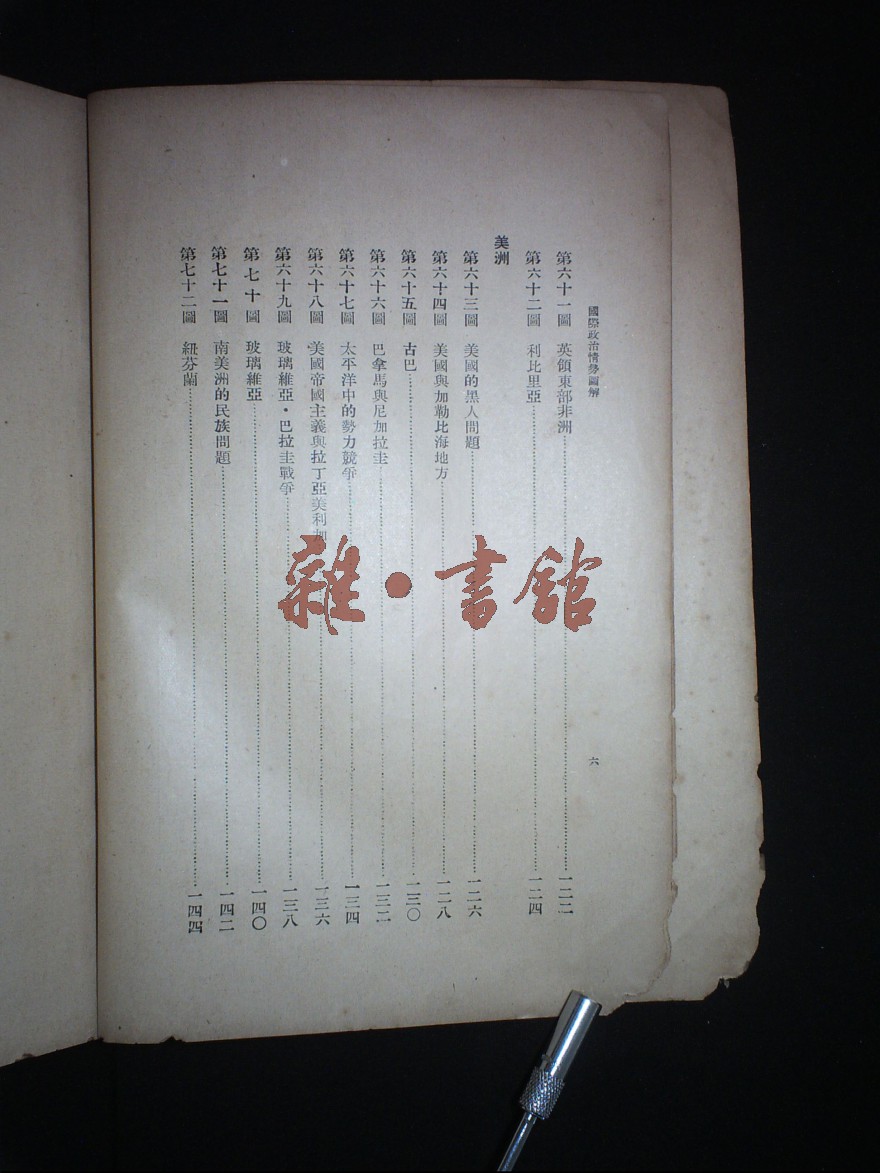 國際政治情勢圖解
六
第六十一圖 英領東部非洲……一二二
第六十二圖 利比里亞……一二四
美洲
第六十三圖 美國的黑人問題……一二六
第六十四圖 美國與加勒比海地方……一二八
第六十五圖 古巴……一三〇
第六十六圖 巴拿馬與尼加拉圭……一三二
第六十七圖 太平洋中的勢力競爭……一三四
第六十八圖 美國帝國主義與拉丁亞美利加……一三六
第六十九圖 玻璃維亞·巴拉圭戰爭……一三八
第七十圖 玻璃維亞……一四〇
第七十一圖 南美洲的民族問題……一四二
第七十二圖 紐芬蘭……一四四
雜·書館